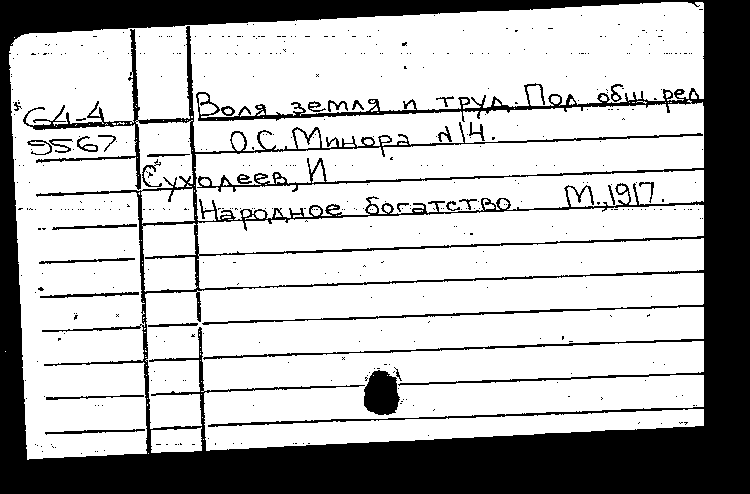 64-4 Воля, земля и труд. Под общ. ред
9567 О.С. Минора №14.
Суходеев, И
Народное богатство. М., 1917.